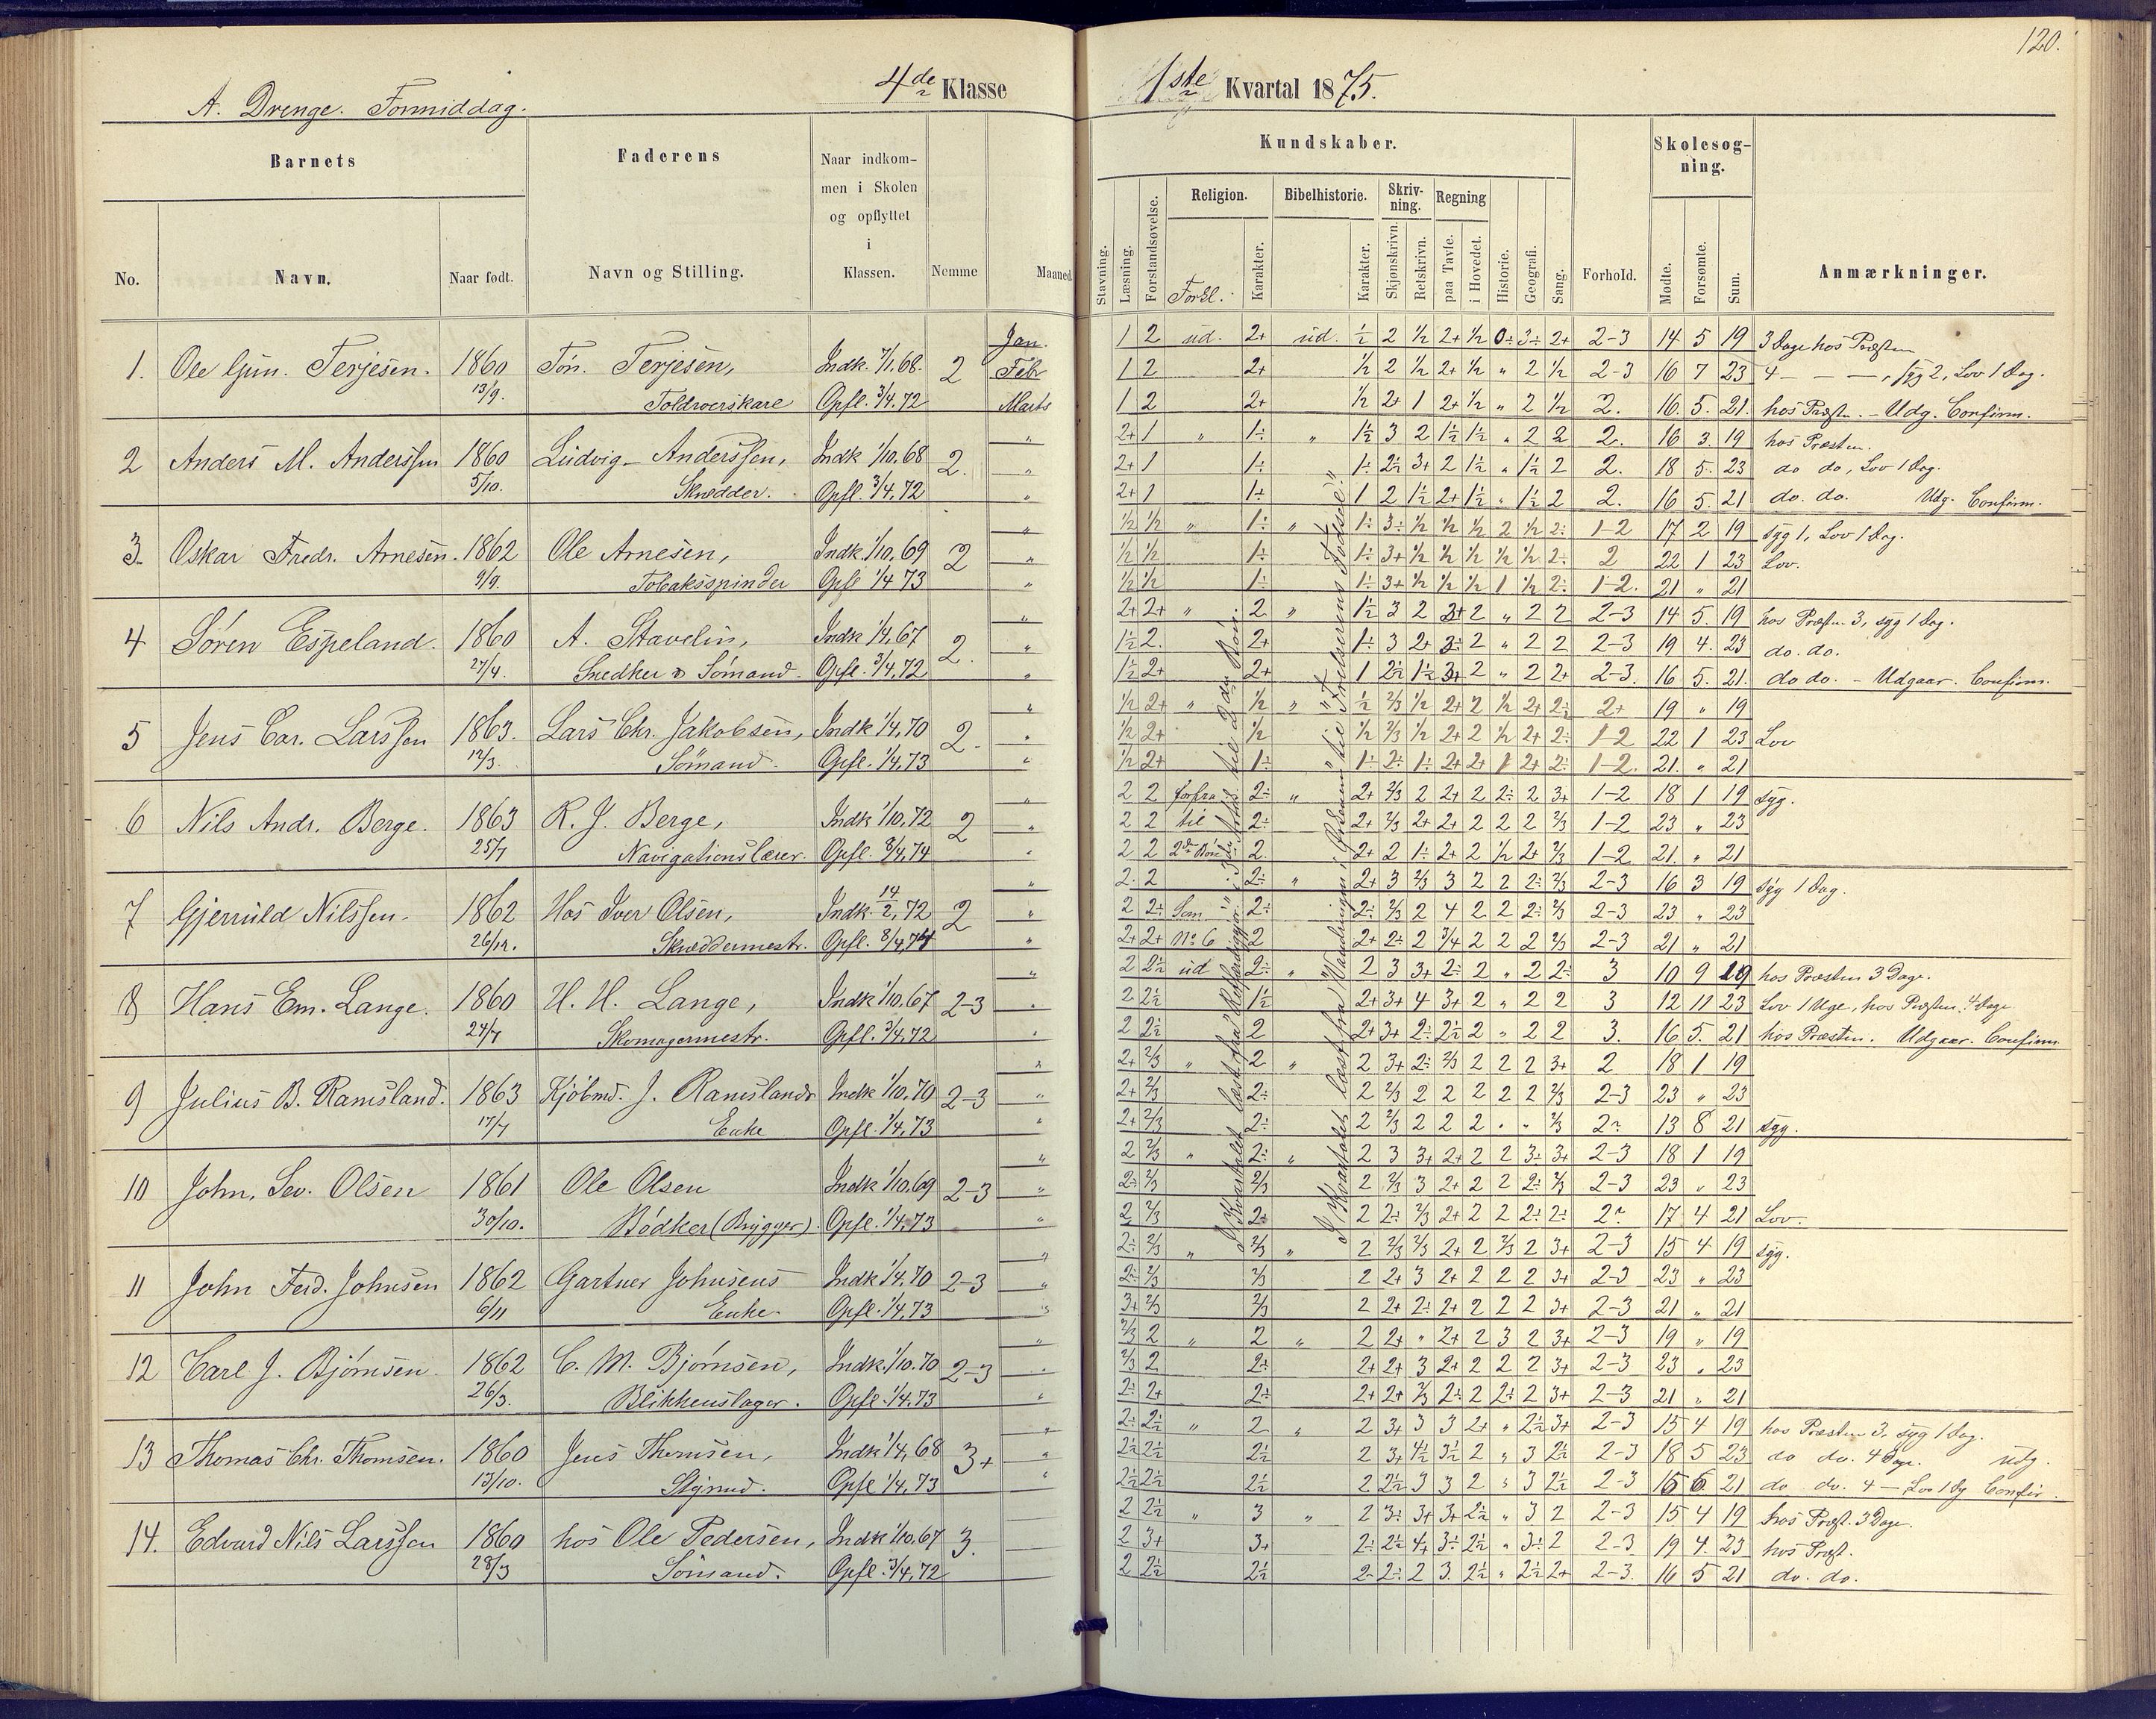 120.
A. Drenge. Formiddag.
4de Klasse
1ste Kvartal 1875.
Barnets
Faderens
Naar indkom-
men i Skolen
og opflyttet
i
Klassen.
No.
Navn.
Naar født.
Navn og Stilling.
Nemme
Maaned.
Kundskaber.
Stavning.
Læsning.
Forstandsøvelse.
Religion.
Forkl.
Karakter.
Bibelhistorie.
Karakter.
Skriv-
ning.
Skjønskrivn.
Retskrivn.
Regning
paa Tavle.
i Hovedet.
Historie.
Geografi.
Sang.
Forhold.
Skolesøg-
ning.
Mødte.
Forsømte.
Sum.
Anmærkninger.
Jan. 1 2 ud. 2+ ud. ½ 2 ½ 2+ ½ 0÷ 3÷ 2+ 2-3 14 5 19 3 Dage hos Præsten
1. Ole Gun. Terjesen. 1860 Tøn. Terjesen, Indk 7/1.68. 2 Febr 1 2 2+ ½ 2 ½ 2+ ½ " 2 ½ 2-3 16 7 23 4 — — —, syg 2, Lov 1 Dag.
13/9. Toldroerskarl Opfl. 3/4.72 Marts 1 2 2+ ½ 2+ 1 2+ ½ " 2 ½ 2. 16. 5. 21. hos Præsten. - Udg. Confirm.
" 2+ 1 " 1÷ " 1½ 3 2 1½ 1½ " 2 2 2. 16 3. 19 hos Præsten.
2 Anders M. Anderssen 1860 Ludvig Anderssen, Indk 1/10.68 2. " 2+ 1 1÷ 1÷ 2½ 3+ 2 1½ " 1½ 2 2. 18 5. 23 do do, Lov 1 Dag.
5/10. Skrædder. Opfl. 3/4.72 " 2+ 1 1÷ 1 2 1½ 2+ 1½ " 1½ 2 2. 16 5. 21 do. do. Udg. Confirm.
" ½ ½ " 1÷ " 1÷ 3÷ ½ ½ ½ 2 ½ 2÷ 1-2 17 2 19 syg 1, Lov 1 Dag.
3. Oskar Fredr. Arnesen. 1862 Ole Arnesen, Indk 1/10.69 2 " ½ ½ 1÷ 1÷ 3+ ½ ½ ½ ½ ½ 2÷ 2 22 1 23 Lov.
9/9. Tobaksspinder Opfl 1/4 73 " ½ ½ 1÷ 1÷ 3+ ½ ½ ½ 1 ½ 2÷ 1-2. 21 " 21
" 2+ 2+ " 2 " 1½ 3 2 3+ 2 " 2 2 2-3 14 5. 19 hos Præsten 3, syg 1 Dag.
4 Søren Espeland. 1860 A. Stavelin, Indk 1/4.67 2. " 1½ 2. 2+ 1÷ 3 2+ 3÷ 2 " 2 2 2-3 19 4. 23 do. do.
27/4. Snedker & Sømand. Opfl. 3/4.72 " 1½ 2+ 2+ 1 2½ 1½ 3+ 2 " 2 2+ 2-3. 16 5. 21. do do. - Udgaar. Confirm.
" ½ 2+ " ½ " ½ 2/3 ½ 2+ 2 ½ 2+ 2½ 2+ 19 " 19
5 Jens Car. Larssen 1863. Lars Chr. Jakobsen, Indk 1/4.70 2. " ½ 2+ ½ ½ 2/3 ½ 2+ 2 ½ 2+ 2÷ 1-2 22 1 23 Lov
12/3. Sømand. Opfl. 1/4.73 " ½ 2+ 1÷ 1÷ 2÷ 1÷ 2+ 2+ 1 2+ 2÷ 1-2. 21. " 21
" 2 2 forfra 2÷ " 2+ 2/3 2 2+ 2 2÷ 2 3+ 1-2 18 1 19 syg.
6 Nils Andr. Berge. 1863 R. J. Berge, Indk 1/10.72 2 " 2 2 til 2÷ 2+ 2/3 2+ 2+ 2 2 2 2/3 1-2 23 " 23
25/7 Navigationslærer. Opfl. 8/4.74 " 2 2 2den Bøn 2. 2+ 2 1÷ 2+ 2 ½ 2+ 2/3 1-2 21. " 21
" 2. 2 2÷ " 2+ 3 2/3 3 2 2 2÷ 2/3 2-3 16 3 19 syg 1 Dag.
7 Gjerruld Nilssen. 1862 Hos Iver Olsen, Indk. 14/2.72 2 " 2 2÷ Som 2÷ 2÷ 2/3 2 4 2 2 2÷ 2/3 2-3 23 " 23
26/12. Skræddermestr. Opfl. 8/4.74 " 2+ 2+ No 6 2 2+ 2÷ 2 3/4 2 2 2 2/3 2-3 21 " 21
" 2 2½ ud 2÷ " 2 3 3+ 2÷ 2 " 2 2÷ 3 10 9 19 hos Præsten 3 Dage.
8 Hans Em. Lange. 1860 H. H. Lange, Indk 1/10.67 2-3 " 2 2½ 1½ 2+ 3+ 4 3+ 2 " 2 2 3 12 11 23 Lov 1 Uge, hos Præsten 4 Dage
24/7 Skomagermestr. Opfl. 3/4.72 " 2 2½ 2 2+ 3+ 2÷ 2½ 2 " 2 2 3. 16 5. 21 hos Præsten. Udgaar. Confirm
" 2+ 2/3 " 2 " 2 3+ 2÷ 2/3 2 2 2 3+ 2 18 1 19
9 Julius B. Ramsland. 1863 Kjøbmd. J. Ramslands Indk 1/10.70 2-3 " 2+ 2/3 2÷ 2 2/3 2 2 2 2 2 2/3 2-3 23 " 23
17/7 Enke Opfl. 1/4.73 " 2+ 2/3 2÷ 2 2/3 2 2 2 " " 2/3 2? 13 8 21 syg.
" 2 2/3 " 2÷ " 2 3 3+ 2+ 2 2 3÷ 3+ 2-3 18 1 19
10 John. Sev. Olsen 1861 Ole Olsen Indk 1/10.69 2-3 " 2÷ 2/3 2/3 2 2/3 3 2+ 2 2 2÷ 2/3 2-3 23 " 23
30/10. Bødker (Brygger). Opfl. 1/4.73 " 2 2/3 2÷ 2 2÷ 2/3 2+ 2 2 2÷ 2÷ 2? 17 4 21 Lov.
" 2÷ 2/3 " 2/3 " 2 2/3 2/3 2+ 2 2/3 2 3+ 2-3 15 4 19 syg.
11 John Ferd. Johnsen 1862 Gartner Johnsens Indk 1/4.70 2-3 " 2÷ 2/3 2/3 2 2+ 3 2+ 2 2 2 3+ 2-3 23 " 23
6/11 Enke. Opfl. 1/4.73 " 3+ 2/3 2/3 2 2+ 2÷ 2+ 2 2 2 3+ 2-3 21 " 21
" 2/3 2 " 2 " 2 2+ " 2+ 2 3 2 3+ 2-3 19 " 19
12 Carl J. Bjørnsen 1862 C. M. Bjørnsen, Indk 1/10.70 2-3 " 2/3 2 2÷ 2+ 2+ 3 2+ 2 2 2 3+ 2-3 23 " 23
26/3. Blikkenslager. Opfl. 1/4.73 " 2÷ 2+ 2÷ 2+ 2+ 2/3 2÷ 2 2÷ 2 3+ 2-3 21 " 21
" 2÷ 2½ " 2 " 2 3+ 3 3 2+ " 2½ 3+ 2-3 15 4 19 hos Præsten 3, syg 1 Dag.
13 Thomas Chr. Thomsen. 1860 Jens Thomsen, Indk 1/4.68 3+ " 2½ 2½ 2½ 2 3+ 4½ 3½ 2 " 3 2½ 2-3 18 5 23 do do. 4 Dage. Udg.
13/10. Styrmd. Opfl 1/4.73 " 2½ 2½ 2½ 2 2½ 3 3 2 " 3 2½ 2-3 15 6 21 do. do. 4 — Lov 1 Dg Confir.
2 2½ " 3 " 2 3÷ 3+ 3+ 2½ " 3 2 2-3 15 4 19 hos Præst. 3 Dage.
14. Edvard Nils Larssen 1860 hos Ole Pedersen, Indk 1/10.67 3. 2 3+ 3+ 2÷ 2½ 4+ 3÷ 2½ " 3÷ 2 2-3 19 4. 23 hos Præst.
28/3 Sømand. Opfl. 3/4.72 2 2½ 2½ 2 2÷ 2 3. 2½ " 2½ 2+ 2-3. 16 5 21 do. do.